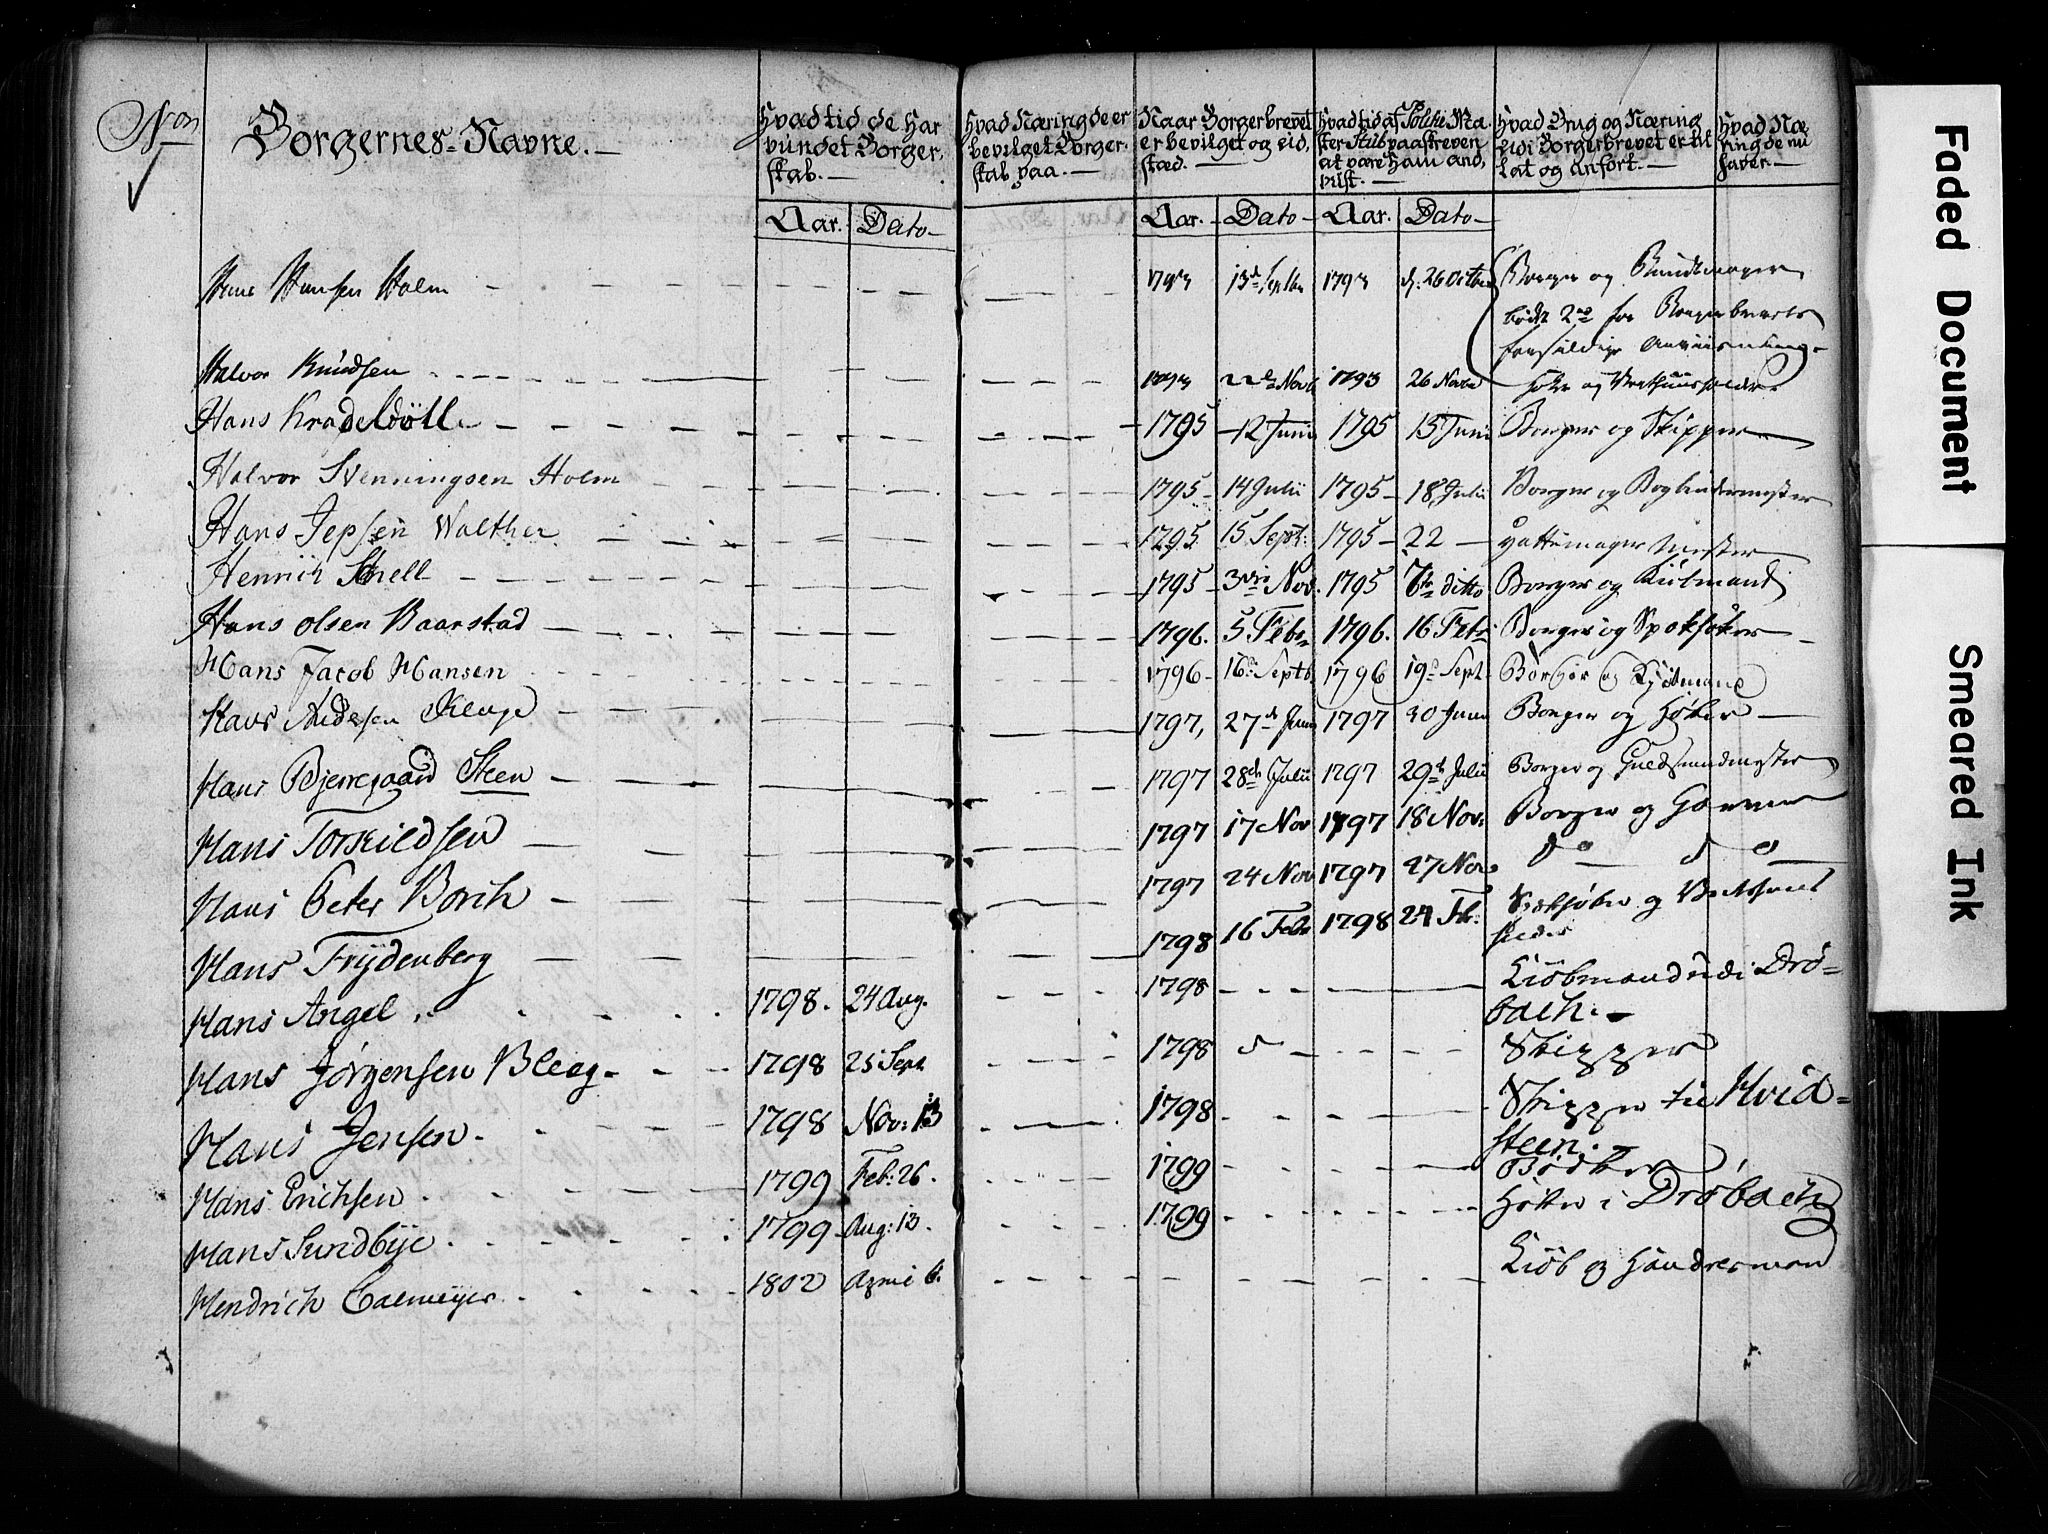 Non
Borgernes Navne.
Hvad tid de har vundet Borgerskab.
Hvad Næring de er bevilget Borgerskab paa.
Naar Borgerbrevet er bevilget og udstæd.
Hvad tid af Politie Mæster Stub paaskreven at være ham andviist.
Hvad Brug og Næring udi Borgerbrevet er tillat og anfört.
Hvad Næring de nu haver.
Aar. Dato Aar. Dato Aar. Dato
Hans Hansen Holm 1793 13d Septbr 1793 d: 26 Octbr Borger og Bundtmager
bödt 2 for Borgerbrevets
forsildige Anviisning
Halvor Knudsen 1793 22de Novb 1793 26 Novbr Höker og Værthuusholder
Hans Kradeböll 1795 12 Junii 1795 15 Junii Borger og Skipper
Halvor Henningsen Holm 1795 14 Julii 1795 18 Julii Borger og Bogbindermester
Hans Jepsen Walther 1795 15 Sept: 1795 22 Hattemager Mester
Henrik Schnell 1795 3die Nov. 1795 7de ditto Borger og Kiöbmand
Hans Olsen Baarstad 1796. 5 Febr 1796. 16 Feb Borger og Spekhöker
Hans Jacob Hansen 1796 16d Septb 1796 19d Sept. Borger og Kjöbmand
Hans Andersen Kleuge 1797, 27d Junii 1797 30 Junii Borger og Höker
Hans Bjerregaard Steen 1797 28de Julii 1797 29d Julii Borger og Guldsmedmester
Hans Torkildsen 1797 17 Nov 1797 18 Nov: Borger og Garver
Hans Peter Borch 1797 24 Nov 1797 27 Nov do do
Hans Frydenberg 1798 16 Febr 1798 24 Fb: Spekhöker og Værtshuus
holder
Hans Angel 1798. 24 Aug. 1798 Kiöbmand udi Drö=
bach.
Hans Jörgensen Bleeg 1798 25 Sept 1798 Skipper
Hans Jensen 1798 Nov: 13 1798 Skipper til Hvid=
steen.
Hans Erichsen 1799 Feb: 26. 1799 Bödker
Hans Sundbye 1799 Aug: 13. 1799 Höker i Dröbach
Hendrich Calmeyer 1802 April 6. Kiöb og Handelsmand
Faded Document
Smeared Ink